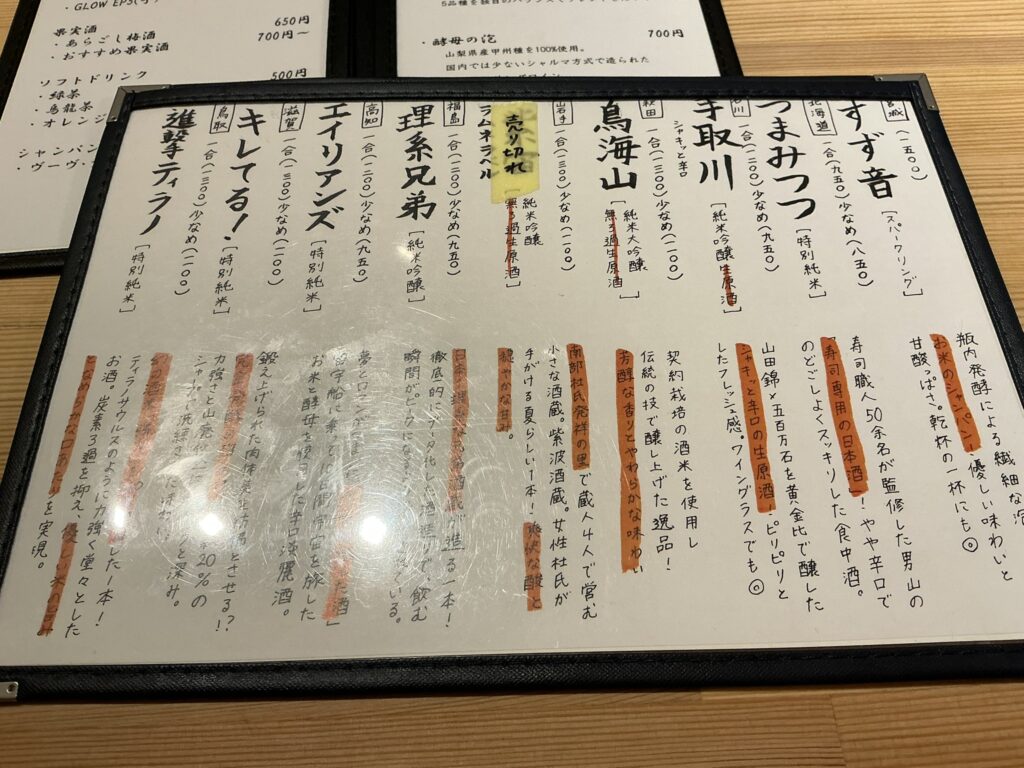 ・GLOW EP5
果実酒
・あらごし梅酒 650円
・おすすめ果実酒 700円～
ソフトドリンク 500円
・緑茶
・烏龍茶
・オレンジ
シャンパン
・ヴーヴ・
・酵母の泡 700円
山梨県産甲州種を100%使用。
国内では少ないシャルマ方式で造られた
宮城
(一五〇〇)
すず音
[スパークリング]
瓶内発酵による繊細な泡
お米のシャンパン!優しい味わいと
甘酸っぱさ。乾杯の一杯にも◎
北海道
一合(九五〇)少なめ(八五〇)
つまみつつ
[特別純米]
寿司職人50余名が監修した男山の
「寿司専用の日本酒」!やや辛口で
のどごしよくスッキリした食中酒。
石川
一合(一二〇〇)少なめ(九五〇)
手取川
シャキッと辛口
[純米吟醸生原酒]
山田錦×五百万石を黄金比で醸した
シャキッと辛口の生原酒!ピリピリと
したフレッシュ感。ワイングラスでも◎
秋田
一合(一三〇〇)少なめ(一一〇〇)
鳥海山
[純米大吟醸
無ろ過生原酒]
契約栽培の酒米を使用し
伝統の技で醸し上げた逸品!
芳醇な香りとやわらかな味わい
岩手
一合(一三〇〇)少なめ(一一〇〇)
ラムネラベル
売り切れ
[純米吟醸
無ろ過生原酒]
南部杜氏発祥の里で蔵人4人で営む
小さな酒蔵。紫波酒蔵。女性杜氏が
手がける夏らしい1本!爽快な酸と
穏やかな甘み。
福島
一合(一二〇〇)少なめ(九五〇)
理系兄弟
[純米吟醸]
造る一本!
徹底的にデータ化した酒造りで、飲む
瞬間がピークになる
高知
一合(一二〇〇)少なめ(九五〇)
エイリアンズ
[特別純米]
夢とロマン
宇宙を旅した
お米と酵母を使用した辛口淡麗酒。
滋賀
一合(一三〇〇)少なめ(一一〇〇)
キレてる!
[特別純米]
鍛え上げられた肉体美
とさせる?!
力強さと山廃
約20%の
シャープで洗練された味わい
と深み。
鳥取
一合(一三〇〇)少なめ(一一〇〇)
進撃ティラノ
[特別純米]
した一本!
ティラノサウルスのように力強く堂々とした
お酒。炭素ろ過を抑え、優しい米の旨み
となめらかな口あたりを実現。